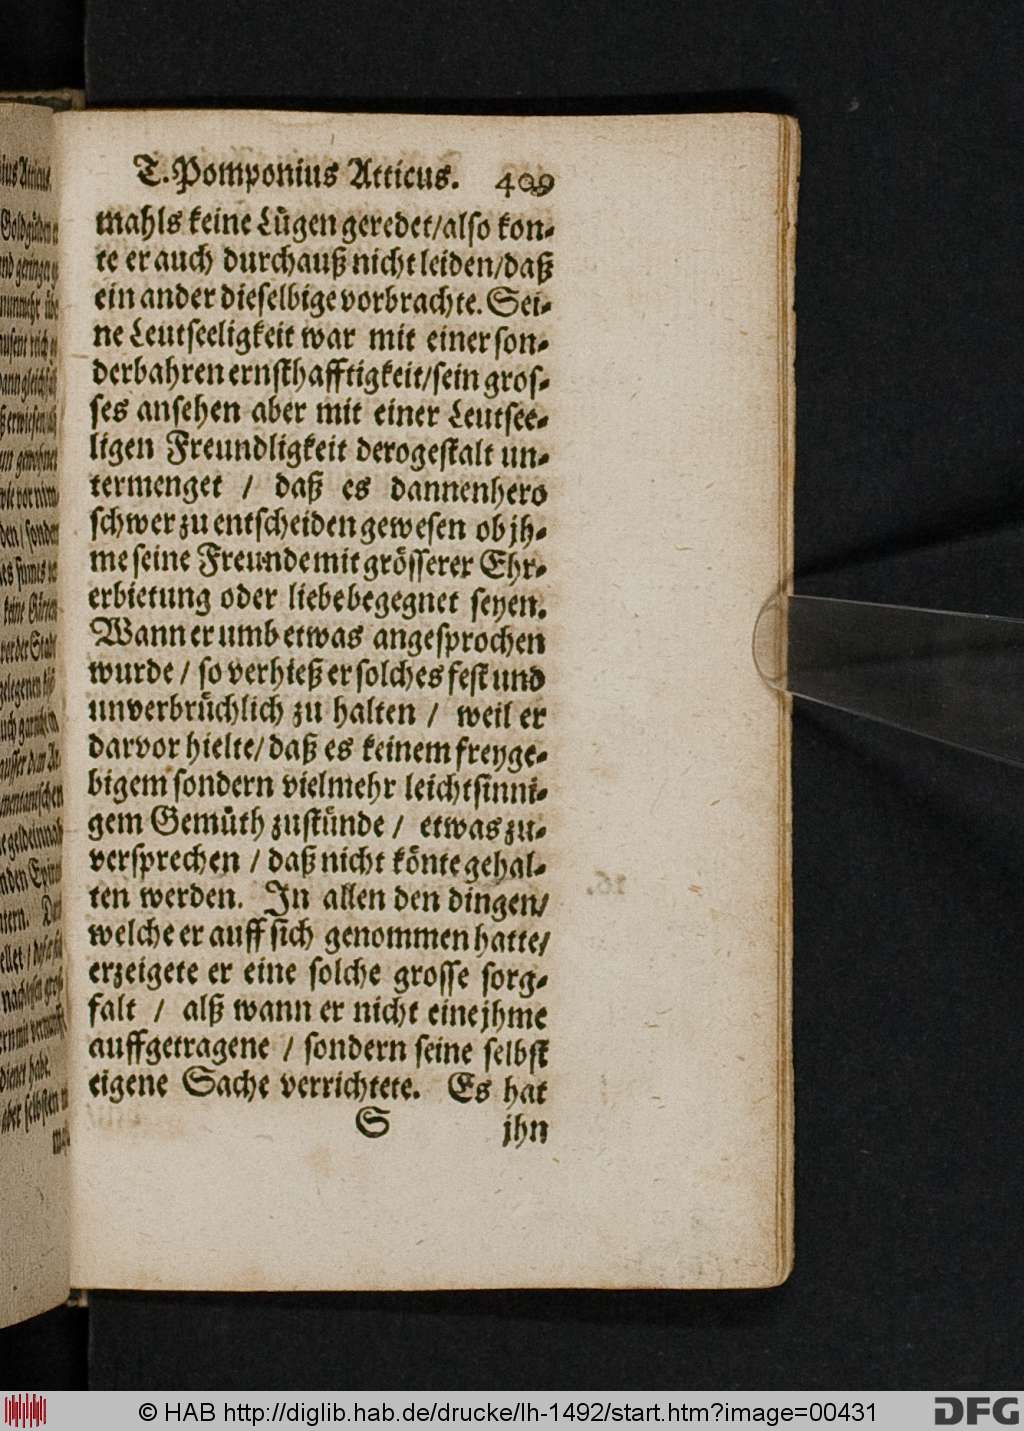 T. Pomponius Atticus. 409
mahls keine Lügen geredet/also kon-
te er auch durchauß nicht leiden/daß
ein ander dieselbige vorbrachte. Sei-
ne Leutseeligkeit war mit einer son-
derbahren ernsthafftigkeit/sein gros-
ses ansehen aber mit einer Leutsee-
ligen Freundligkeit derogestalt un-
termenget / daß es dannenhero
schwer zu entscheiden gewesen ob jh-
me seine Freunde mit grösserer Ehr-
erbietung oder liebe begegnet seyen.
Wann er umb etwas angesprochen
wurde / so verhieß er solches fest und
unverbrüchlich zu halten / weil er
darvor hielte/daß es keinem freyge-
bigem sondern vielmehr leichtsinni-
gem Gemüth zustünde / etwas zu-
versprechen / daß nicht könte gehal-
ten werden. In allen den dingen/
welche er auff sich genommen hatte/
erzeigete er eine solche grosse sorg-
falt / alß wann er nicht eine jhme
auffgetragene / sondern seine selbst
eigene Sache verrichtete. Es hat
S jhn
© HAB http://diglib.hab.de/drucke/lh-1492/start.htm?image=00431
DFG